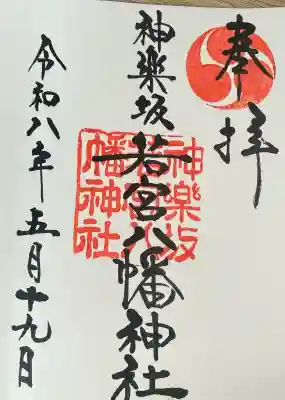 奉拝
神楽坂若宮八幡神社
神樂坂
若宮八
幡神社
令和八年五月十九日